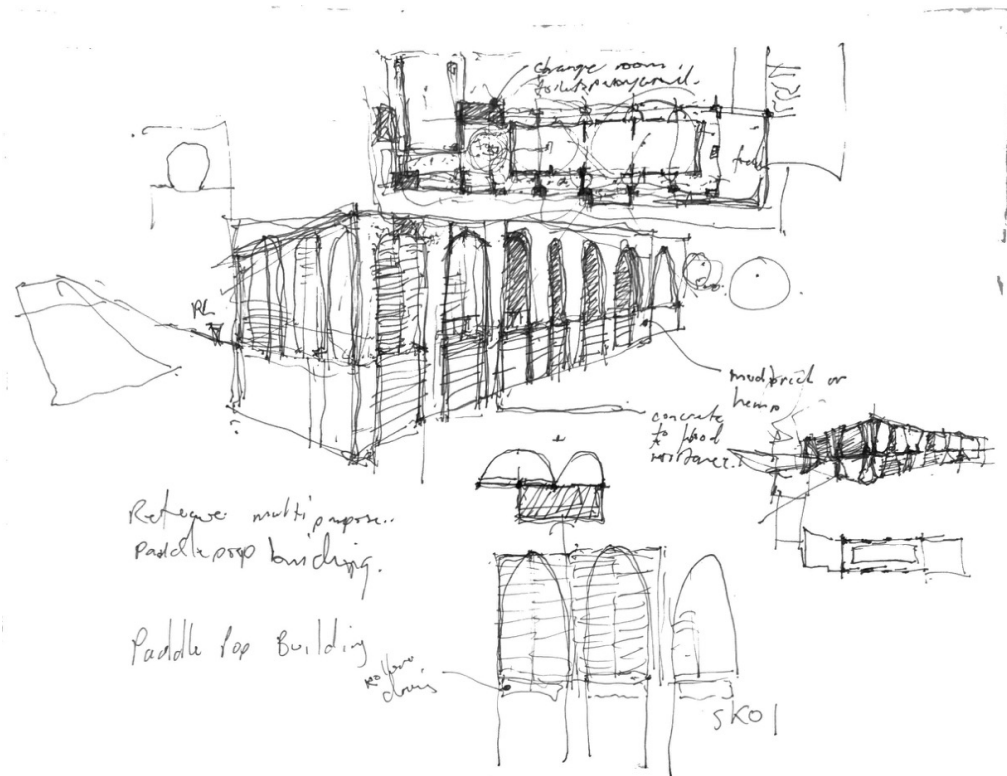 change room
RL
mudbrick or
hemp
concrete
to flood
resistance.
multipurpose..
Paddlepop building.
Paddle Pop Building
doors
SK01